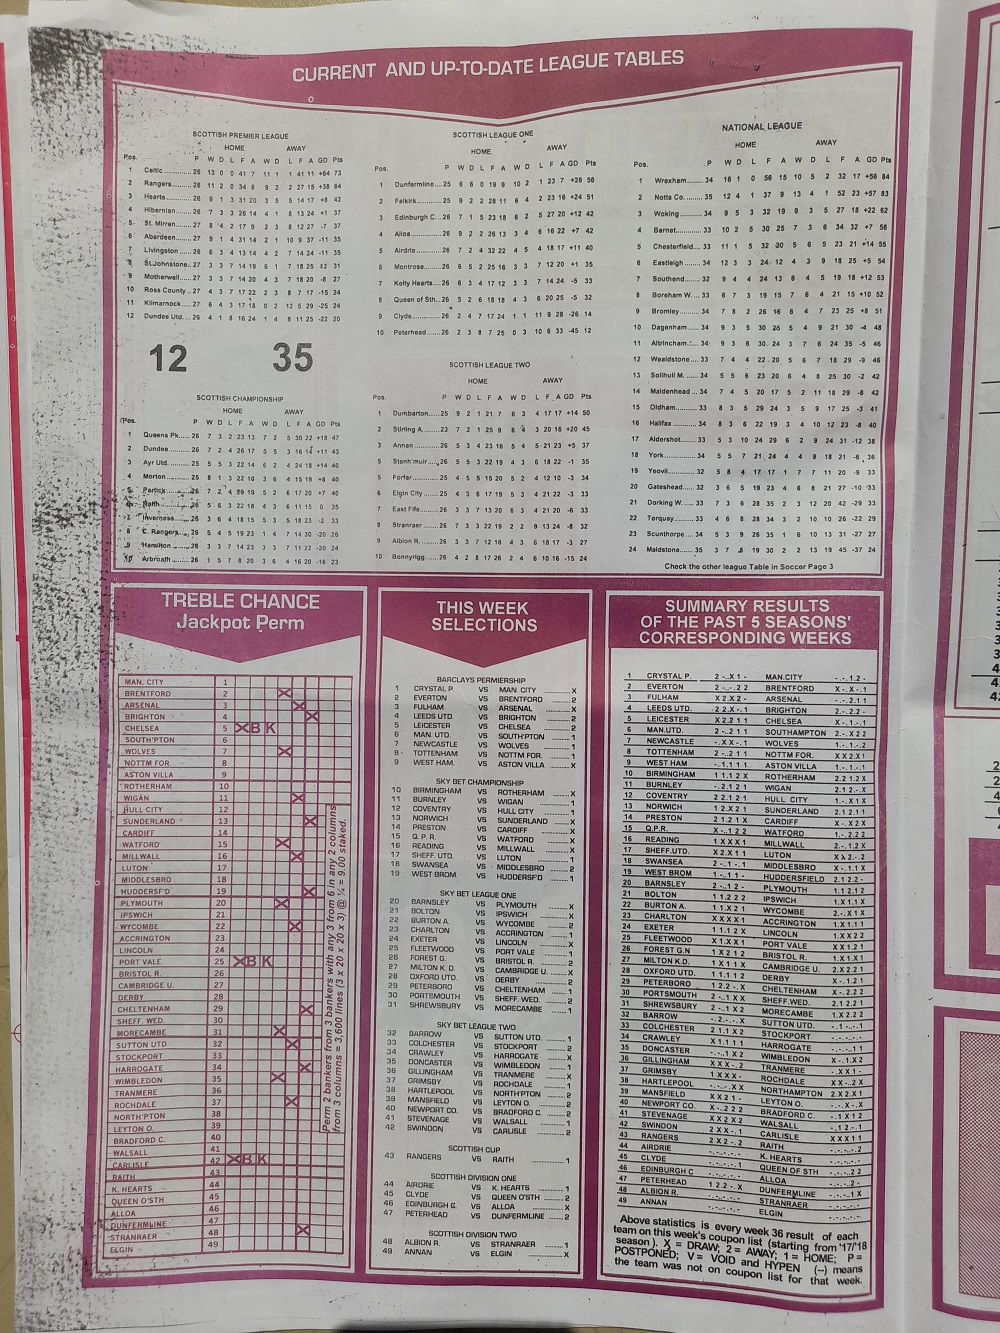 CURRENT AND UP-TO-DATE LEAGUE TABLES
SCOTTISH PREMIER LEAGUE
HOME AWAY
Pos. P W D L F A W D L F A GD Pts
1 Celtic 26 13 0 0 41 7 11 1 1 41 11 +64 73
2 Rangers 26 11 2 0 34 8 9 2 2 27 15 +38 64
3 Hearts 26 9 1 3 31 20 3 5 5 14 17 +8 42
4 Hibernian 26 7 3 3 26 14 4 1 8 13 24 +1 37
5 St. Mirren 27 8 4 2 17 9 2 3 8 12 27 -7 37
6 Aberdeen 27 9 1 4 31 14 2 1 10 9 37 -11 35
7 Livingston 26 6 3 4 13 14 4 2 7 14 24 -11 35
8 St.Johnstone 27 3 3 7 14 19 6 1 7 18 25 42 31
9 Motherwell 27 3 3 7 14 20 4 3 7 18 20 -8 27
10 Ross County 27 4 3 7 17 22 2 3 8 7 17 -15 24
11 Kilmarnock 27 6 4 3 17 18 0 2 12 5 29 -25 24
12 Dundee Utd. 26 4 1 8 16 24 1 4 8 11 25 -22 20
12 35
SCOTTISH CHAMPIONSHIP
HOME AWAY
Pos.
1 Queens Pk. 26 7 3 2 23 13 7 2 5 30 22 +18 47
2 Dundee
3 Ayr Utd.
4 Morton
5 Partick
6 Raith
7 Inverness
8 C. Rangers
9 Hamilton
10 Arbroath
SCOTTISH LEAGUE ONE
HOME AWAY
Pos. P W D L F A W D L F A GD Pts
1 Dunfermline 25 6 6 0 19 9 10 2 1 23 7 +26 56
2 Falkirk 25 9 2 2 28 11 6 4 2 23 16 +24 51
3 Edinburgh C. 26 7 1 5 23 18 6 2 5 27 20 +12 42
4 Alloa 26 9 2 2 26 13 3 4 6 16 22 +7 42
5 Airdrie 26 7 2 4 32 22 4 5 4 18 17 +11 40
6 Montrose 26 6 5 2 25 16 3 3 7 12 20 +1 35
7 Kelty Hearts 26 6 3 4 17 12 3 3 7 14 24 -5 33
8 Queen of Sth. 26 5 2 6 18 18 4 3 6 20 25 -5 32
9 Clyde 26 2 4 7 17 24 1 1 11 9 28 -26 14
10 Peterhead 26 2 3 8 7 25 0 3 10 6 33 -45 12
SCOTTISH LEAGUE TWO
HOME AWAY
1 Dumbarton 25 9 2 1 21 7 6 3 4 17 17 +14 50
2 Stirling A. 23 7 2 1 25 9 6 4 3 20 16 +20 45
3 Annan 26 5 3 4 23 16 5 4 5 21 23 +5 37
4 Stenh'muir 26 5 5 3 22 19 4 3 6 18 22 -1 35
5 Forfar 25 4 5 5 15 20 5 2 4 12 10 -3 34
6 Elgin City 25 4 3 6 17 19 5 3 4 21 22 -3 33
7 East Fife 26 3 3 7 13 20 6 3 4 21 20 -6 33
8 Stranraer 26 7 3 3 22 19 2 2 9 13 24 -8 32
9 Albion R. 26 3 3 7 12 16 4 3 6 18 17 -3 27
10 Bonnyrigg 26 4 2 8 17 26 2 4 6 10 16 -15 24
NATIONAL LEAGUE
HOME AWAY
Pos. P W D L F A W D L F A GD Pts
1 Wrexham 34 16 1 0 56 15 10 5 2 32 17 +56 84
2 Notts Co. 35 12 4 1 37 9 13 4 1 52 23 +57 83
3 Woking 34 9 5 3 32 19 9 3 5 27 18 +22 62
4 Barnet 33 10 2 5 30 25 7 3 6 34 32 +7 56
5 Chesterfield 33 11 1 5 32 20 5 6 5 23 21 +14 55
6 Eastleigh 34 12 3 3 24 12 4 3 9 18 25 +5 54
7 Southend 32 9 4 4 24 13 6 4 5 19 18 +12 53
8 Boreham W. 33 6 7 3 19 15 7 6 4 21 15 +10 52
9 Bromley 34 7 8 2 26 16 6 4 7 23 25 +8 51
10 Dagenham 34 9 3 5 30 25 5 4 9 21 30 -4 48
11 Altrincham 34 9 6 3 30 24 3 7 6 24 35 -5 46
12 Wealdstone 33 7 4 4 22 20 5 6 7 18 29 -9 46
13 Solihull M. 34 5 5 6 23 20 6 4 8 25 30 -2 42
14 Maidenhead 34 7 4 5 20 17 5 2 11 18 29 -8 42
15 Oldham 33 8 3 5 29 24 3 5 9 17 25 -3 41
16 Halifax 33 8 3 6 22 19 3 4 10 12 23 -8 40
17 Aldershot 33 5 3 10 24 29 6 2 9 24 31 -12 38
18 York 34 5 5 7 21 24 4 4 9 18 21 -6 36
19 Yeovil 32 5 8 4 17 17 1 7 7 11 20 -9 33
20 Gateshead 32 3 6 5 19 23 4 6 8 21 27 -10 33
21 Dorking W. 33 7 3 6 28 35 2 3 12 20 42 -29 33
22 Torquay 33 4 6 8 28 34 3 2 10 10 26 -22 29
23 Scunthorpe 34 5 3 9 26 35 1 5 10 13 31 -27 27
24 Maidstone 35 3 7 8 19 30 2 2 13 19 45 -37 24
Check the other league Table in Soccer Page 3
TREBLE CHANCE
Jackpot Perm
MAN. CITY 1
BRENTFORD 2
ARSENAL 3
BRIGHTON 4
CHELSEA 5 X B K
SOUTH'PTON 6
WOLVES 7
NOTTM FOR. 8
ASTON VILLA 9
ROTHERHAM 10
WIGAN 11
HULL CITY 12
SUNDERLAND 13
CARDIFF 14
WATFORD 15
MILLWALL 16
LUTON 17
MIDDLESBRO 18
HUDDERSF'D 19
PLYMOUTH 20
IPSWICH 21
WYCOMBE 22
ACCRINGTON 23
LINCOLN 24
PORT VALE 25 X B K
BRISTOL R. 26
CAMBRIDGE U. 27
DERBY 28
CHELTENHAM 29
SHEFF. WED. 30
MORECAMBE 31
SUTTON UTD. 32
STOCKPORT 33
HARROGATE 34
WIMBLEDON 35
TRANMERE 36
ROCHDALE 37
NORTH'PTON 38
LEYTON O. 39
BRADFORD C. 40
WALSALL 41
CARLISLE 42 X B K
RAITH 43
K. HEARTS 44
QUEEN O'STH 45
ALLOA 46
DUNFERMLINE 47
STRANRAER 48
ELGIN 49
Perm 2 bankers from 3 bankers with any 3 from 6 in any 2 columns
from 3 columns = 3,600 lines (3 x 20 x 20 x 3) @ ¼ = 9.00 staked.
THIS WEEK
SELECTIONS
BARCLAYS PERMIERSHIP
1 CRYSTAL P. VS MAN. CITY X
2 EVERTON VS BRENTFORD 2
3 FULHAM VS ARSENAL X
4 LEEDS UTD. VS BRIGHTON 2
5 LEICESTER VS CHELSEA 2
6 MAN. UTD. VS SOUTH'PTON 1
7 NEWCASTLE VS WOLVES 1
8 TOTTENHAM VS NOTTM FOR. 1
9 WEST HAM. VS ASTON VILLA X
SKY BET CHAMPIONSHIP
10 BIRMINGHAM VS ROTHERHAM X
11 BURNLEY VS WIGAN 1
12 COVENTRY VS HULL CITY 1
13 NORWICH VS SUNDERLAND X
14 PRESTON VS CARDIFF X
15 Q. P. R. VS WATFORD X
16 READING VS MILLWALL X
17 SHEFF. UTD. VS LUTON 1
18 SWANSEA VS MIDDLESBRO 2
19 WEST BROM. VS HUDDERSF'D 1
SKY BET LEAGUE ONE
20 BARNSLEY VS PLYMOUTH X
21 BOLTON VS IPSWICH X
22 BURTON A. VS WYCOMBE 2
23 CHARLTON VS ACCRINGTON 1
24 EXETER VS LINCOLN X
25 FLEETWOOD VS PORT VALE 1
26 FOREST G. VS BRISTOL R. 2
27 MILTON K. D. VS CAMBRIDGE U. X
28 OXFORD UTD. VS DERBY 2
29 PETERBORO VS CHELTENHAM 1
30 PORTSMOUTH VS SHEFF. WED. 2
31 SHREWSBURY VS MORECAMBE 1
SKY BET LEAGUE TWO
32 BARROW VS SUTTON UTD. 1
33 COLCHESTER VS STOCKPORT 2
34 CRAWLEY VS HARROGATE X
35 DONCASTER VS WIMBLEDON 1
36 GILLINGHAM VS TRANMERE X
37 GRIMSBY VS ROCHDALE 1
38 HARTLEPOOL VS NORTH'PTON 2
39 MANSFIELD VS LEYTON O. 2
40 NEWPORT CO. VS BRADFORD C. 2
41 STEVENAGE VS WALSALL 1
42 SWINDON VS CARLISLE 2
SCOTTISH CUP
43 RANGERS VS RAITH 1
SCOTTISH DIVISION ONE
44 AIRDRIE VS K. HEARTS 1
45 CLYDE VS QUEEN O'STH 2
46 EDINBURGH C. VS ALLOA X
47 PETERHEAD VS DUNFERMLINE 2
SCOTTISH DIVISION TWO
48 ALBION R. VS STRANRAER 1
49 ANNAN VS ELGIN X
SUMMARY RESULTS
OF THE PAST 5 SEASONS'
CORRESPONDING WEEKS
1 CRYSTAL P. 2 - . X 1 - MAN.CITY - . - . 1 2 -
2 EVERTON 2 - . - . 2 2 BRENTFORD X - . X - . 1
3 FULHAM X 2 X 2 - ARSENAL - . - . 2 1 1
4 LEEDS UTD. - 2 2 X - . 1 BRIGHTON 2 - . 2 2 -
5 LEICESTER X 2 2 1 1 CHELSEA X - . 1 - . 1
6 MAN.UTD. 2 - . 2 1 1 SOUTHAMPTON 2 - . X 2 2
7 NEWCASTLE - . X X - . 1 WOLVES 1 - . 1 - . 2
8 TOTTENHAM 2 - . 2 1 1 NOTTM FOR. X X 2 X 1
9 WEST HAM - . 1 1 1 1 ASTON VILLA 1 - . 1 - . 1
10 BIRMINGHAM 1 1 1 2 X ROTHERHAM 2 2 1 2 X
11 BURNLEY - . 2 1 2 1 WIGAN 2 1 2 - . X
12 COVENTRY 2 2 1 2 1 HULL CITY 1 - . X 1 X
13 NORWICH 1 2 X 2 1 SUNDERLAND 2 1 2 1 1
14 PRESTON 2 1 2 1 X CARDIFF X - . X 2 X
15 Q.P.R. X - . 1 2 2 WATFORD 1 - . 2 2 2
16 READING 1 X X X 1 MILLWALL 2 - . 1 2 X
17 SHEFF.UTD. X 2 X 1 1 LUTON X X 2 - . 2
18 SWANSEA 2 - . 1 - . 1 MIDDLESBRO X - . 1 1 X
19 WEST BROM 1 - . 1 1 - HUDDERSFIELD 2 1 2 2 -
20 BARNSLEY 2 - . 1 2 - PLYMOUTH 1 1 2 1 2
21 BOLTON 1 1 2 2 2 IPSWICH 1 X 1 1 X
22 BURTON A. 1 1 X 2 1 WYCOMBE 2 - . X 1 X
23 CHARLTON X X X X 1 ACCRINGTON 1 X 1 1 1
24 EXETER 1 1 1 2 X LINCOLN 1 X X 2 2
25 FLEETWOOD X 1 X X 1 PORT VALE X X 1 2 1
26 FOREST G.N 1 X 2 1 2 BRISTOL R. 1 X 1 X 1
27 MILTON K.D. 1 X 1 1 X CAMBRIDGE U. 2 X 2 2 1
28 OXFORD UTD. 1 1 1 1 2 DERBY X - . 1 2 1
29 PETERBORO 1 2 2 - . X CHELTENHAM X - . 2 2 2
30 PORTSMOUTH 2 - . 1 X X SHEFF.WED. 2 1 2 2 1
31 SHREWSBURY 2 - . 1 X 2 MORECAMBE 1 X 2 2 2
32 BARROW - . 2 - . - . X SUTTON UTD.
33 COLCHESTER 2 1 1 X 2 STOCKPORT
34 CRAWLEY X 1 1 1 1 HARROGATE - . - . - . 1 1
35 DONCASTER - . - . 1 X 2 WIMBLEDON X - . 1 X 2
36 GILLINGHAM X X X - . 2 TRANMERE - . X X 1 -
37 GRIMSBY 1 X X X - ROCHDALE X X - . 2 X
38 HARTLEPOOL - . - . - . X X NORTHAMPTON 2 X 2 X 1
39 MANSFIELD X X 2 1 - LEYTON O. - . - . X - . X
40 NEWPORT CO. X - . 2 2 2 BRADFORD C. - . 1 X 1 2
41 STEVENAGE X X 2 X 2 WALSALL - . 1 2 - . 1
42 SWINDON 2 X X - . 1 CARLISLE X X X 1 1
43 RANGERS 2 X 2 - . 2 RAITH - . - . - . - . 2
44 AIRDRIE K. HEARTS
45 CLYDE QUEEN OF STH
46 EDINBURGH C ALLOA
47 PETERHEAD 1 2 2 - . X DUNFERMLINE - . - . - . 1 X
48 ALBION R. STRANRAER
49 ANNAN ELGIN
Above statistics is every week 36 result of each
team on this week's coupon list (starting from '17/'18
season). X = DRAW; 2 = AWAY; 1 = HOME; P =
POSTPONED; V = VOID and HYPEN (--) means
the team was not on coupon list for that week.